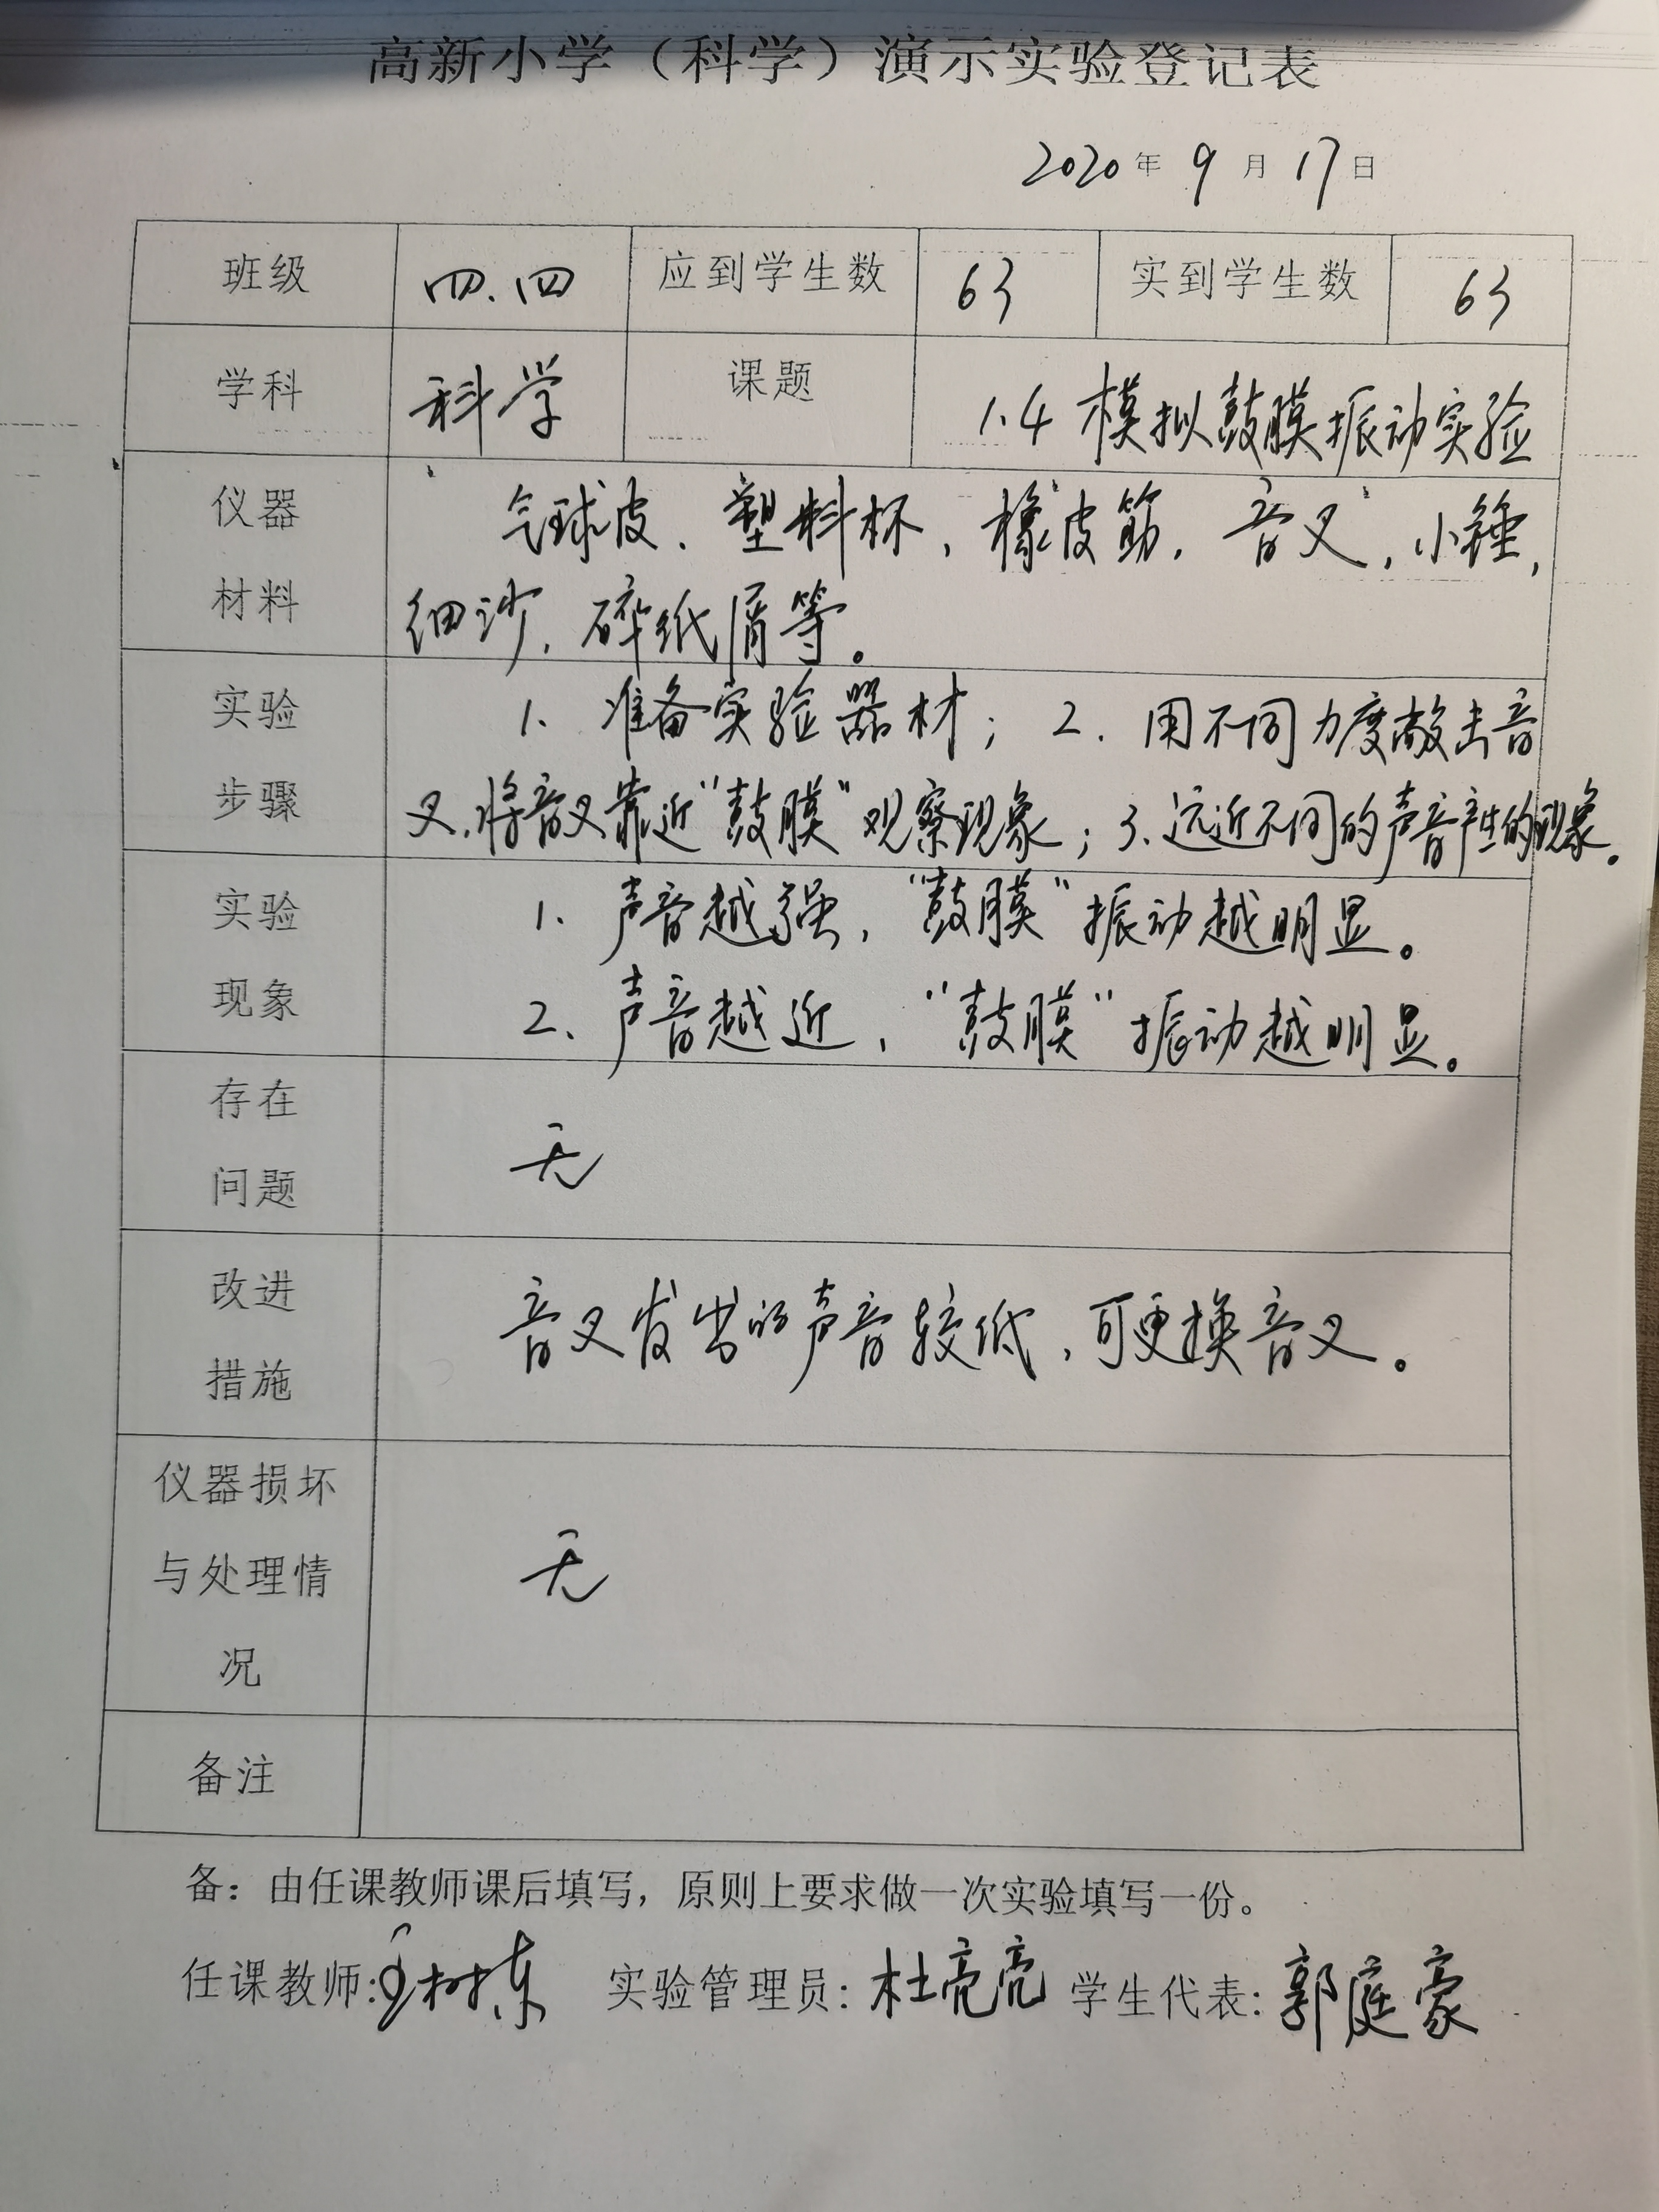 高新小学（科学）演示实验登记表
2020年9月17日
班级 四.四 应到学生数 63 实到学生数 63
学科 科学 课题 1.4 模拟鼓膜振动实验
仪器 气球皮、塑料杯，橡皮筋，音叉，小锤，
材料 细沙，碎纸屑等。
实验 1、准备实验器材；2、用不同力度敲击音
步骤 叉，将音叉靠近“鼓膜”观察现象；3、远近不同的声音产生的现象。
实验 1、声音越强，“鼓膜”振动越明显。
现象 2、声音越近，“鼓膜”振动越明显。
存在
无
问题
改进
音叉发出的声音较低，可更换音叉。
措施
仪器损坏
与处理情 无
况
备注
备：由任课教师课后填写，原则上要求做一次实验填写一份。
任课教师: 树东 实验管理员: 杜亮亮 学生代表: 郭庭豪